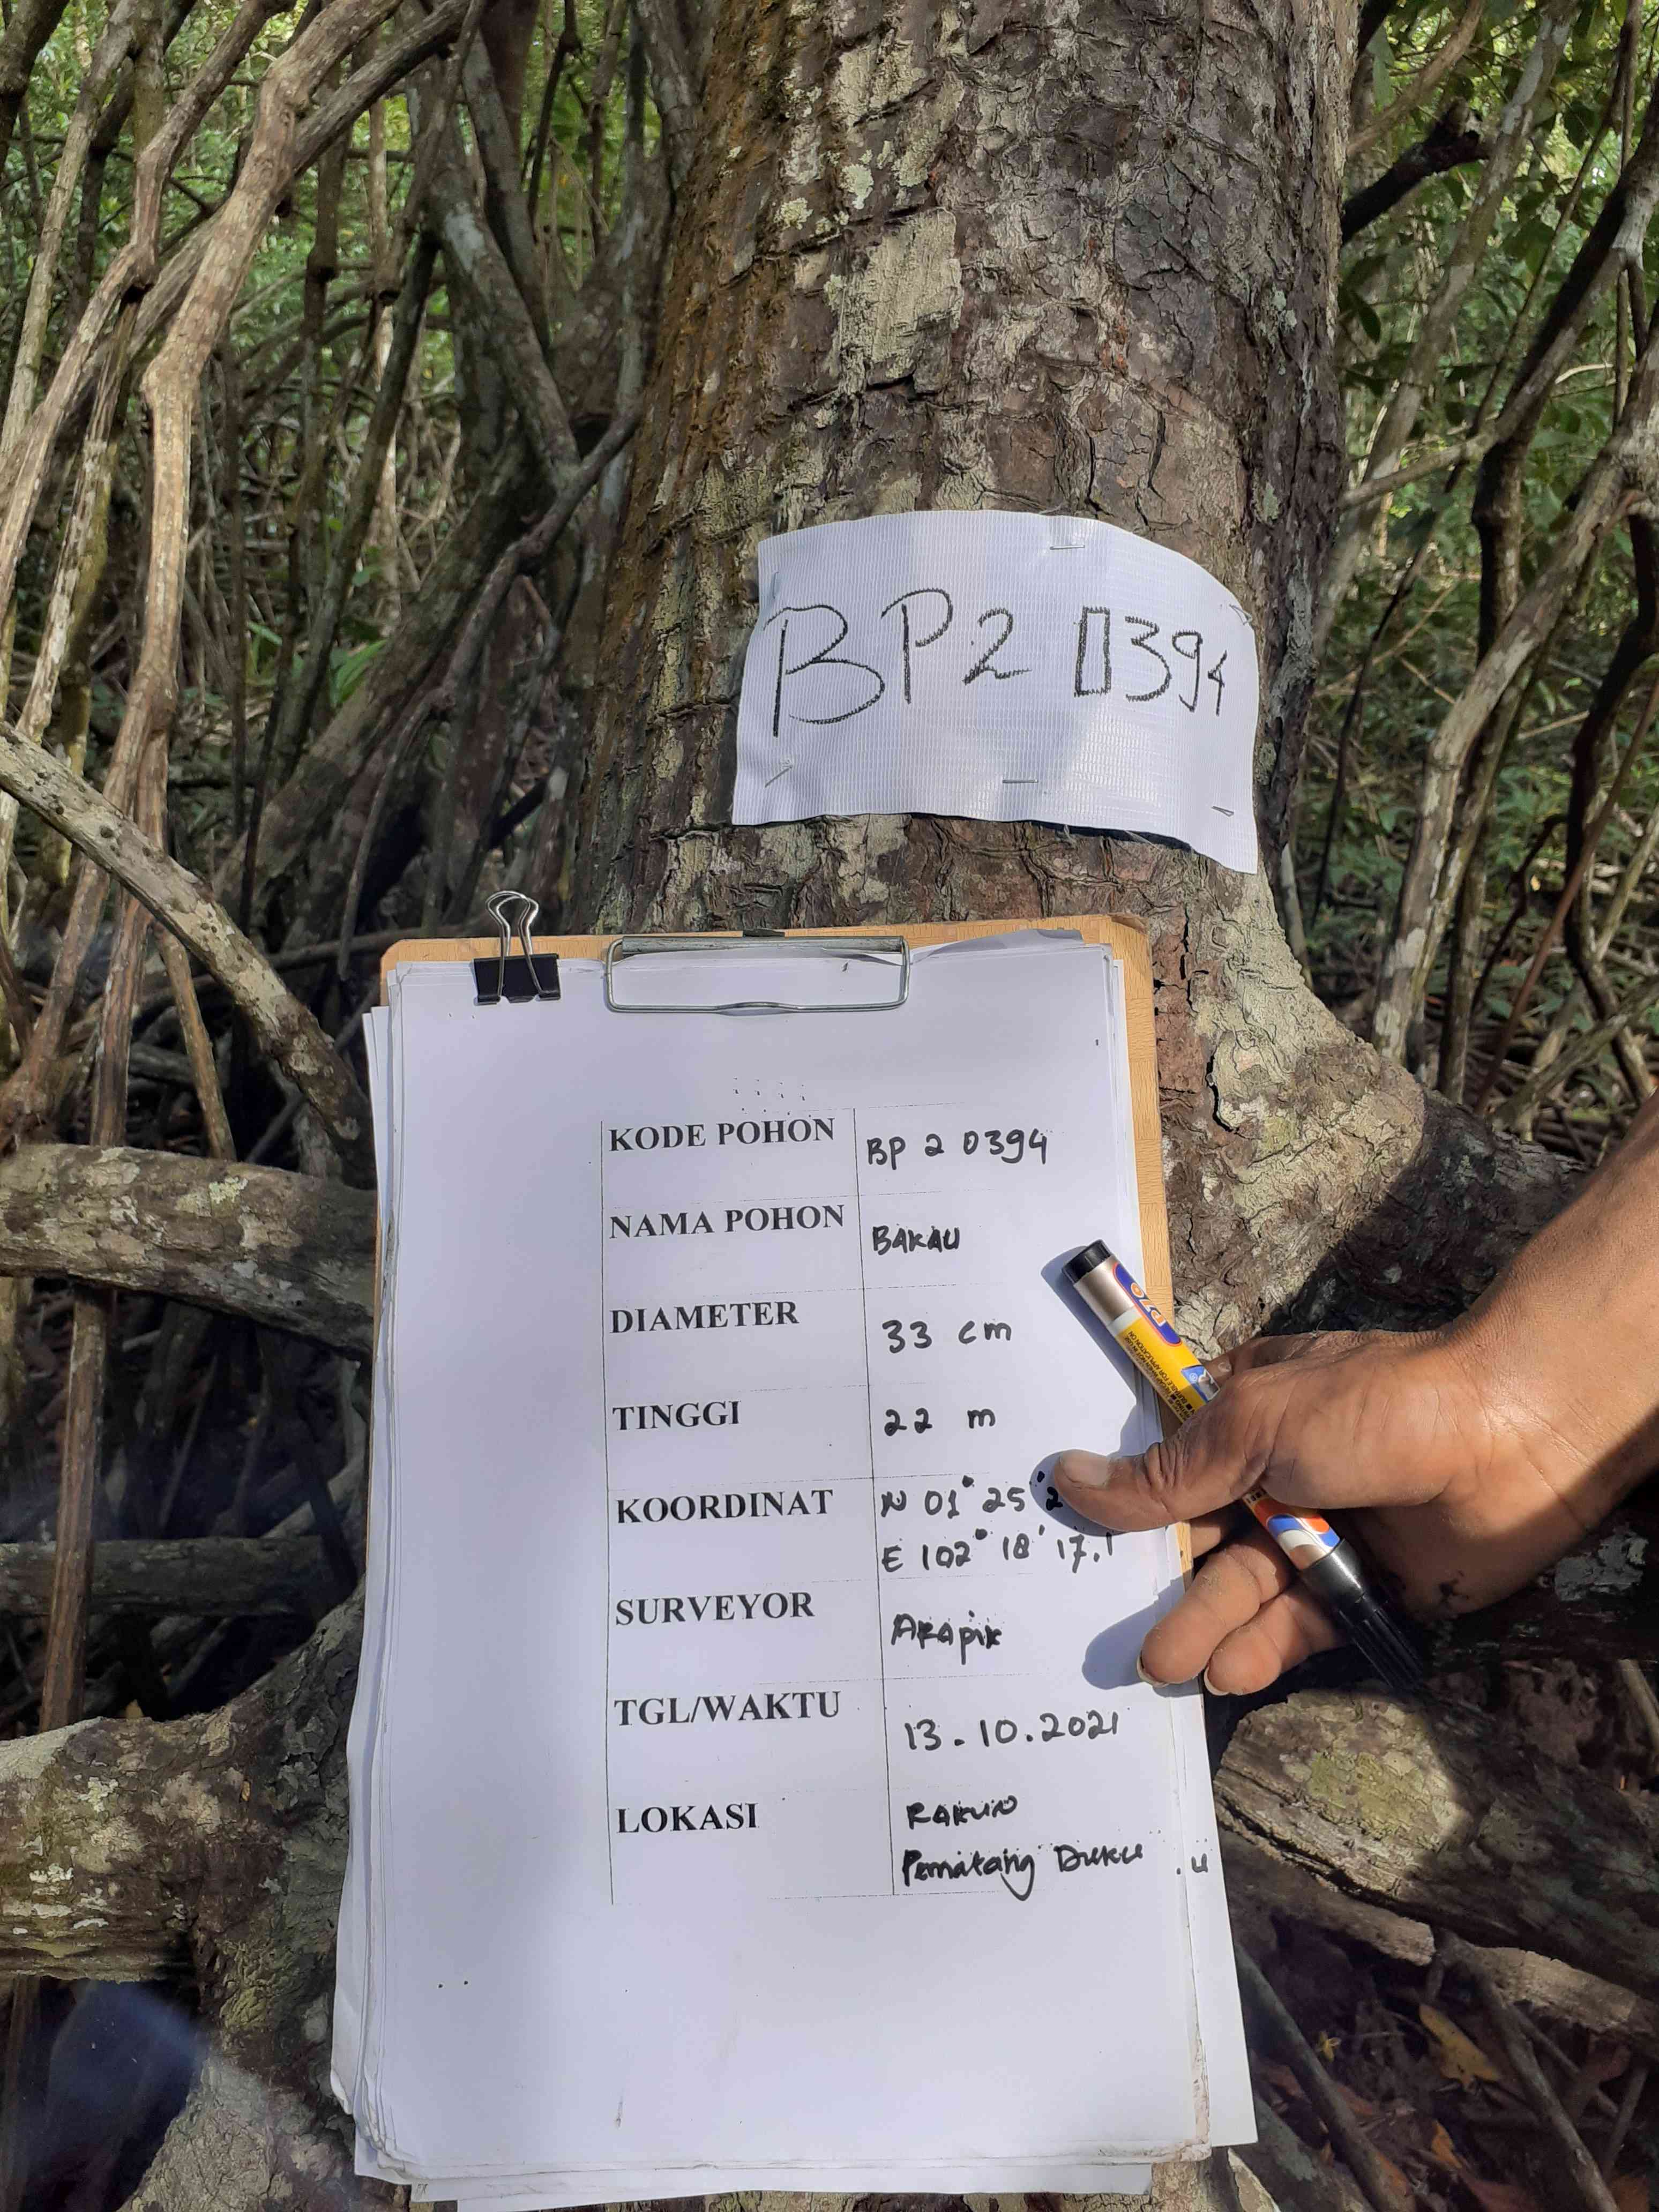 BP2 0394
KODE POHON BP 2 0394
NAMA POHON BAKAU
DIAMETER 33 cm
TINGGI 22 m
KOORDINAT N 01° 25' 2
E 102° 18' 17.1
SURVEYOR ARApik
TGL/WAKTU 13.10.2021
LOKASI RAKUN
Pematang Duku